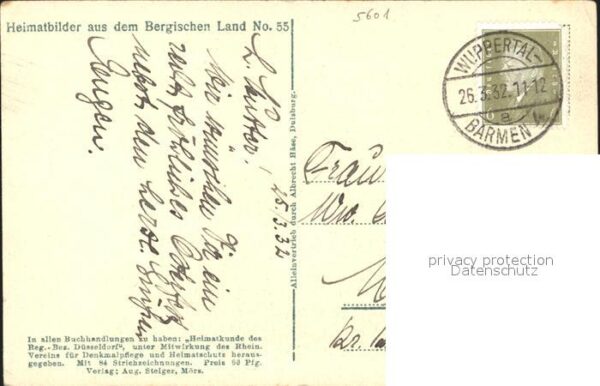 5601
Heimatbilder aus dem Bergischen Land No. 55
WUPPERTAL-
26.3.32.11-12
a
BARMEN 1
25.3.32
Wir wünschen Dir ein
recht fröhliches Osterfest
nebst den herzl. Grüßen
Eugen.
Alleinvertrieb durch Albrecht Häse, Duisburg.
Frau
Ww.
privacy protection
Datenschutz
In allen Buchhandlungen zu haben: „Heimatkunde des
Reg.-Bez. Düsseldorf", unter Mitwirkung des Rhein.
Vereins für Denkmalpflege und Heimatschutz heraus-
gegeben. Mit 84 Strichzeichnungen. Preis 63 Pfg.
Verlag: Aug. Steiger, Mörs.